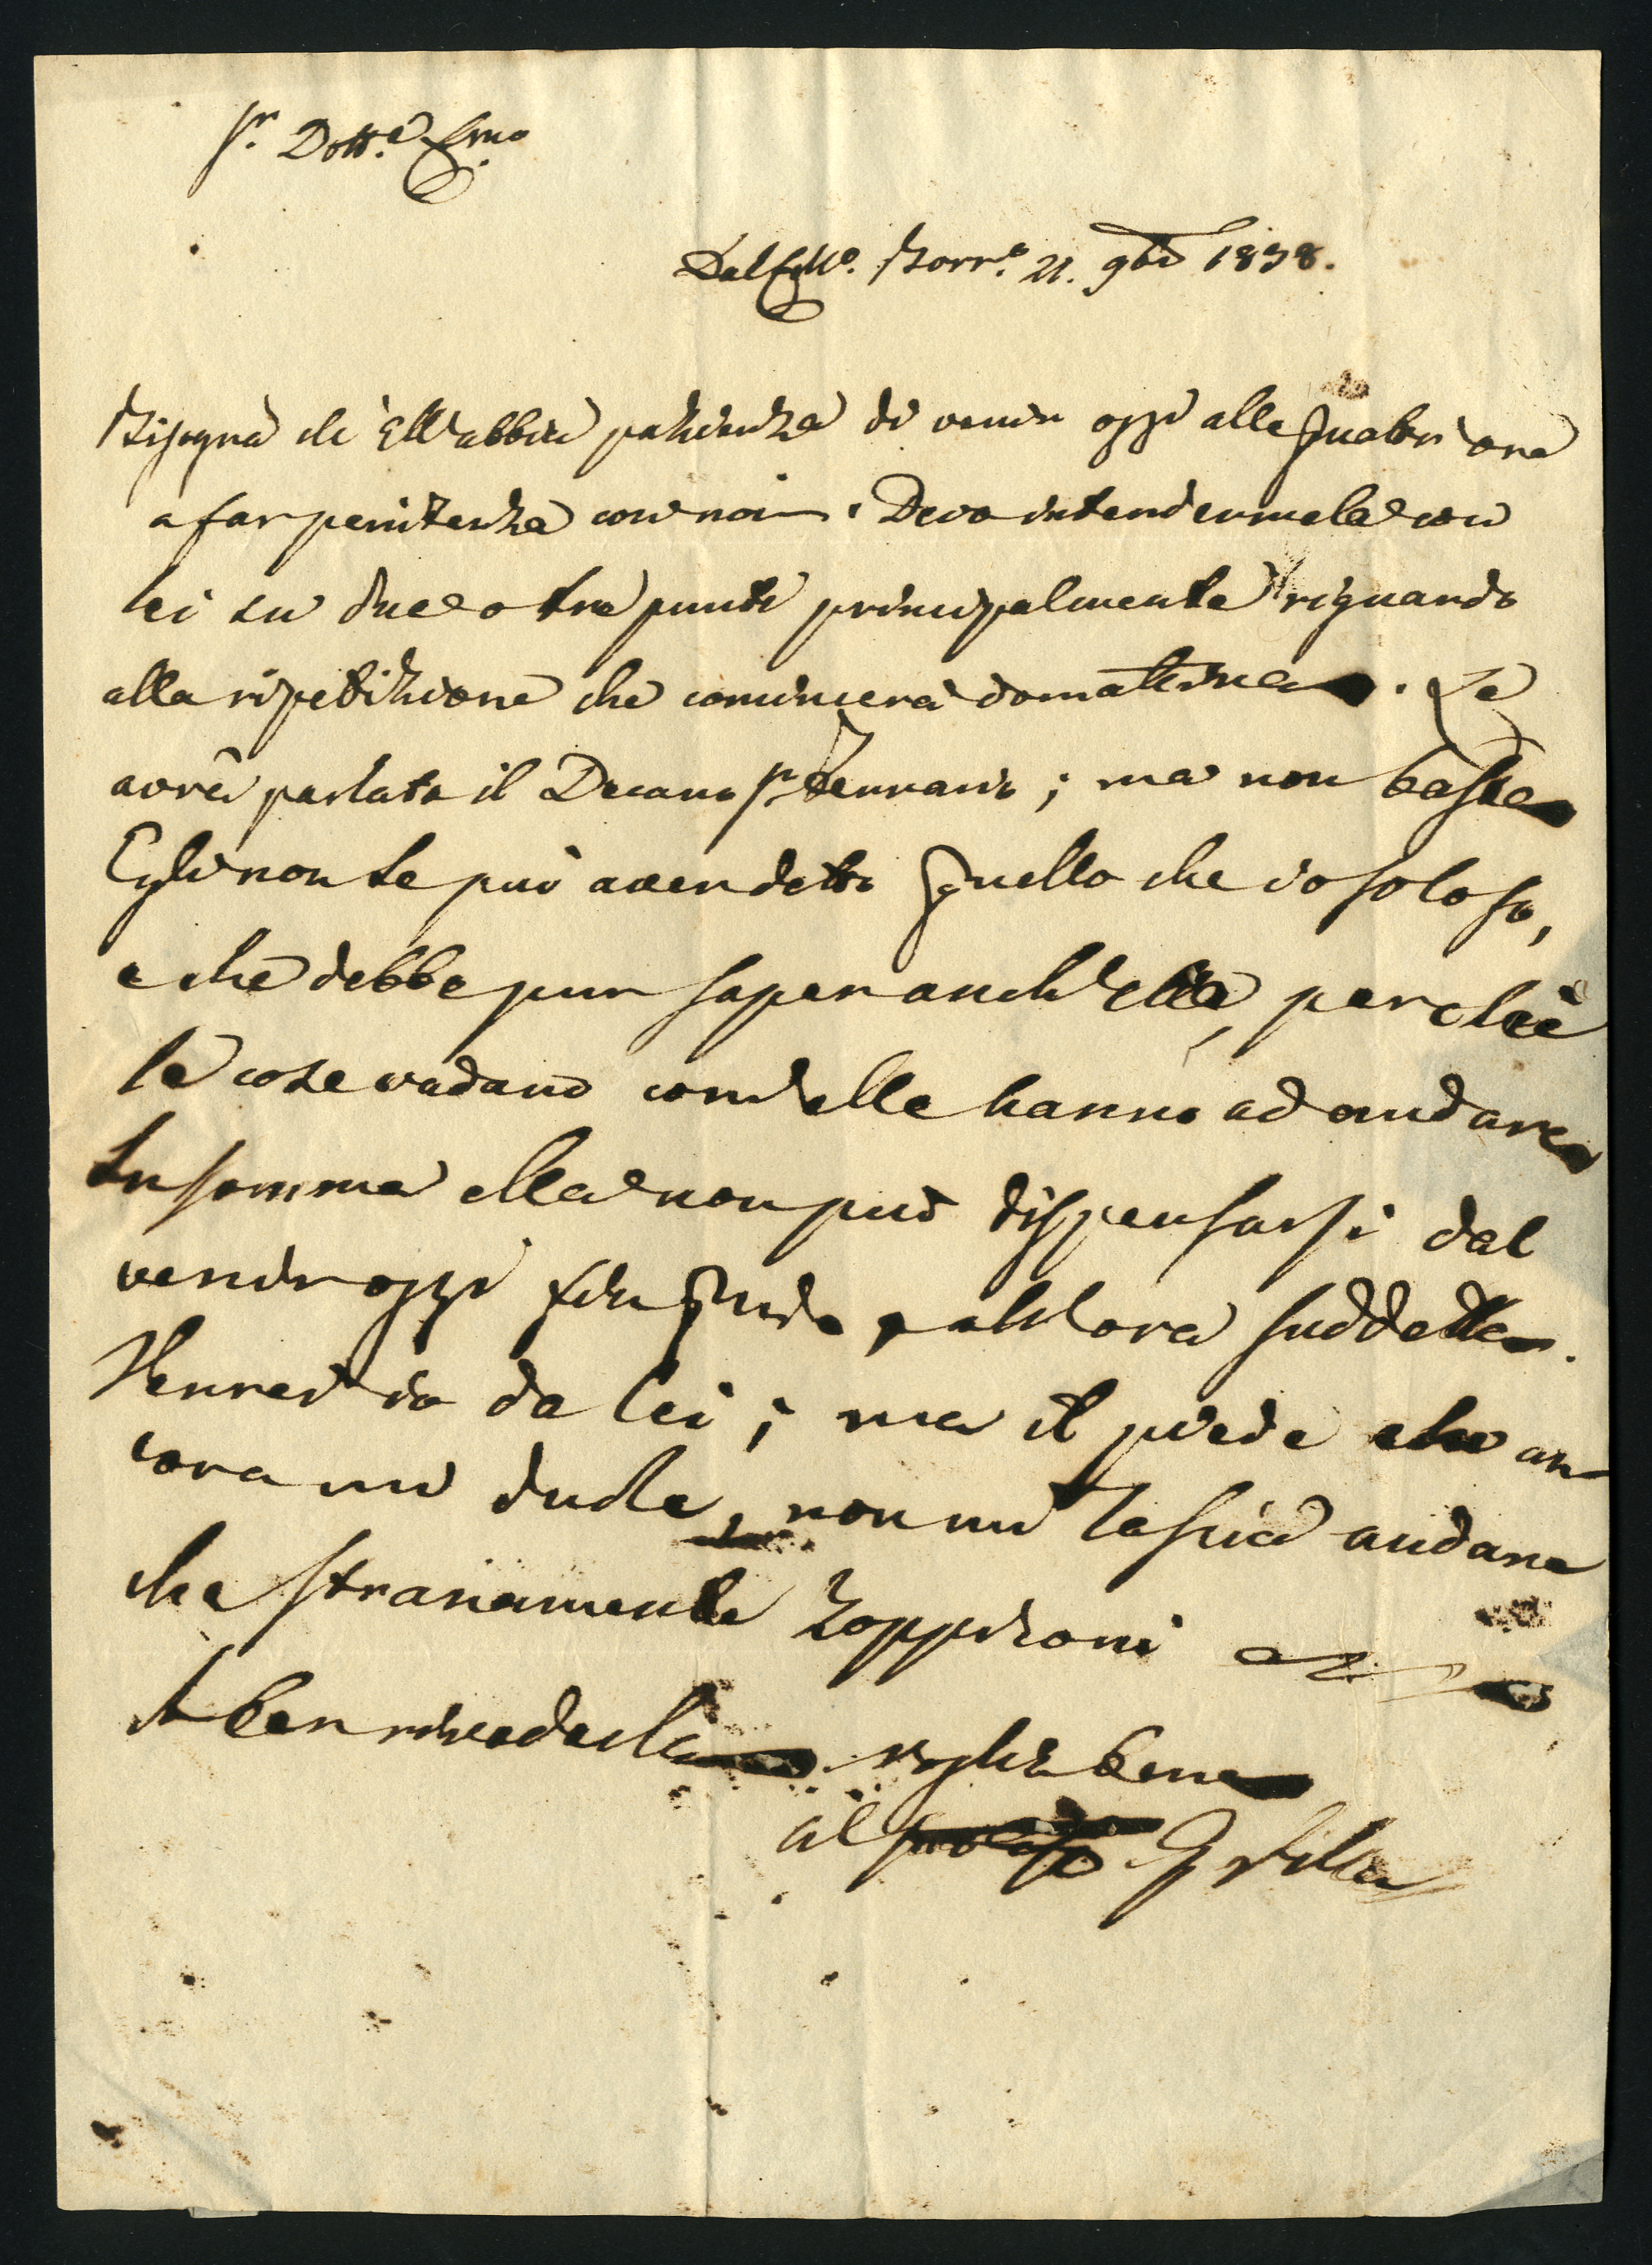 Sr. Dott.e Emo.
Dal Coll.o Borr.o 21. 9bre 1838.
Bisogna ch'Ell'abbia pazienza di venir oggi alle quattr'ore
a far penitenza con noi. Devo intendermela con
lei su due o tre punti principalmente riguardo
alla ripetizione che comincerà domattina. Le
avrà parlato il Decano Sr. Gennario; ma non basta
Egli non le può aver detto quello che io solo so,
e che debbe pur saper anch'ella, perchè
le cose vadano com'elle hanno ad andare
In somma ella non può dispensarsi dal
venir oggi fin quì all'ora suddetta.
Verrei io da lei; ma il piede che an-
cora mi duole, non mi lascia andare
che stranamente zoppiconi
A ben rivederla. Voglia bene
al suo